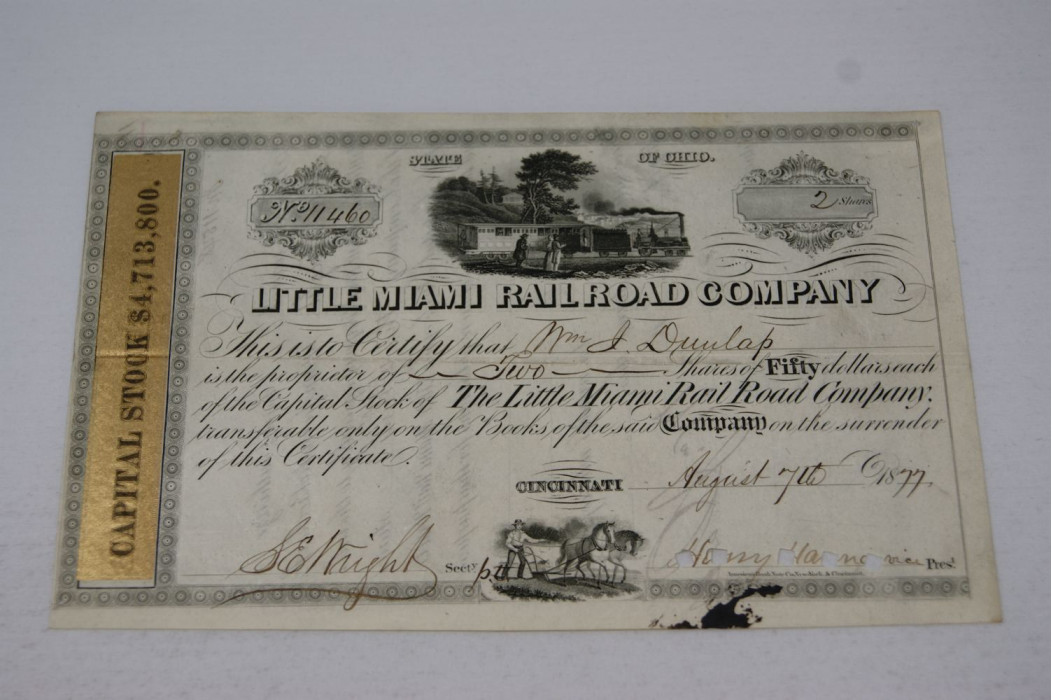 STATE OF OHIO.
No 11460
2 Shares
LITTLE MIAMI RAILROAD COMPANY
This is to Certify that Wm J. Dunlap
is the proprietor of Two Shares of Fifty dollars each
of the Capital Stock of The Little Miami Rail Road Company.
transferable only on the Books of the said Company on the surrender
of this Certificate.
CINCINNATI August 7th 1877
S E Wright Secty. Henry Hanna vice Prest
CAPITAL STOCK $4,713,800.